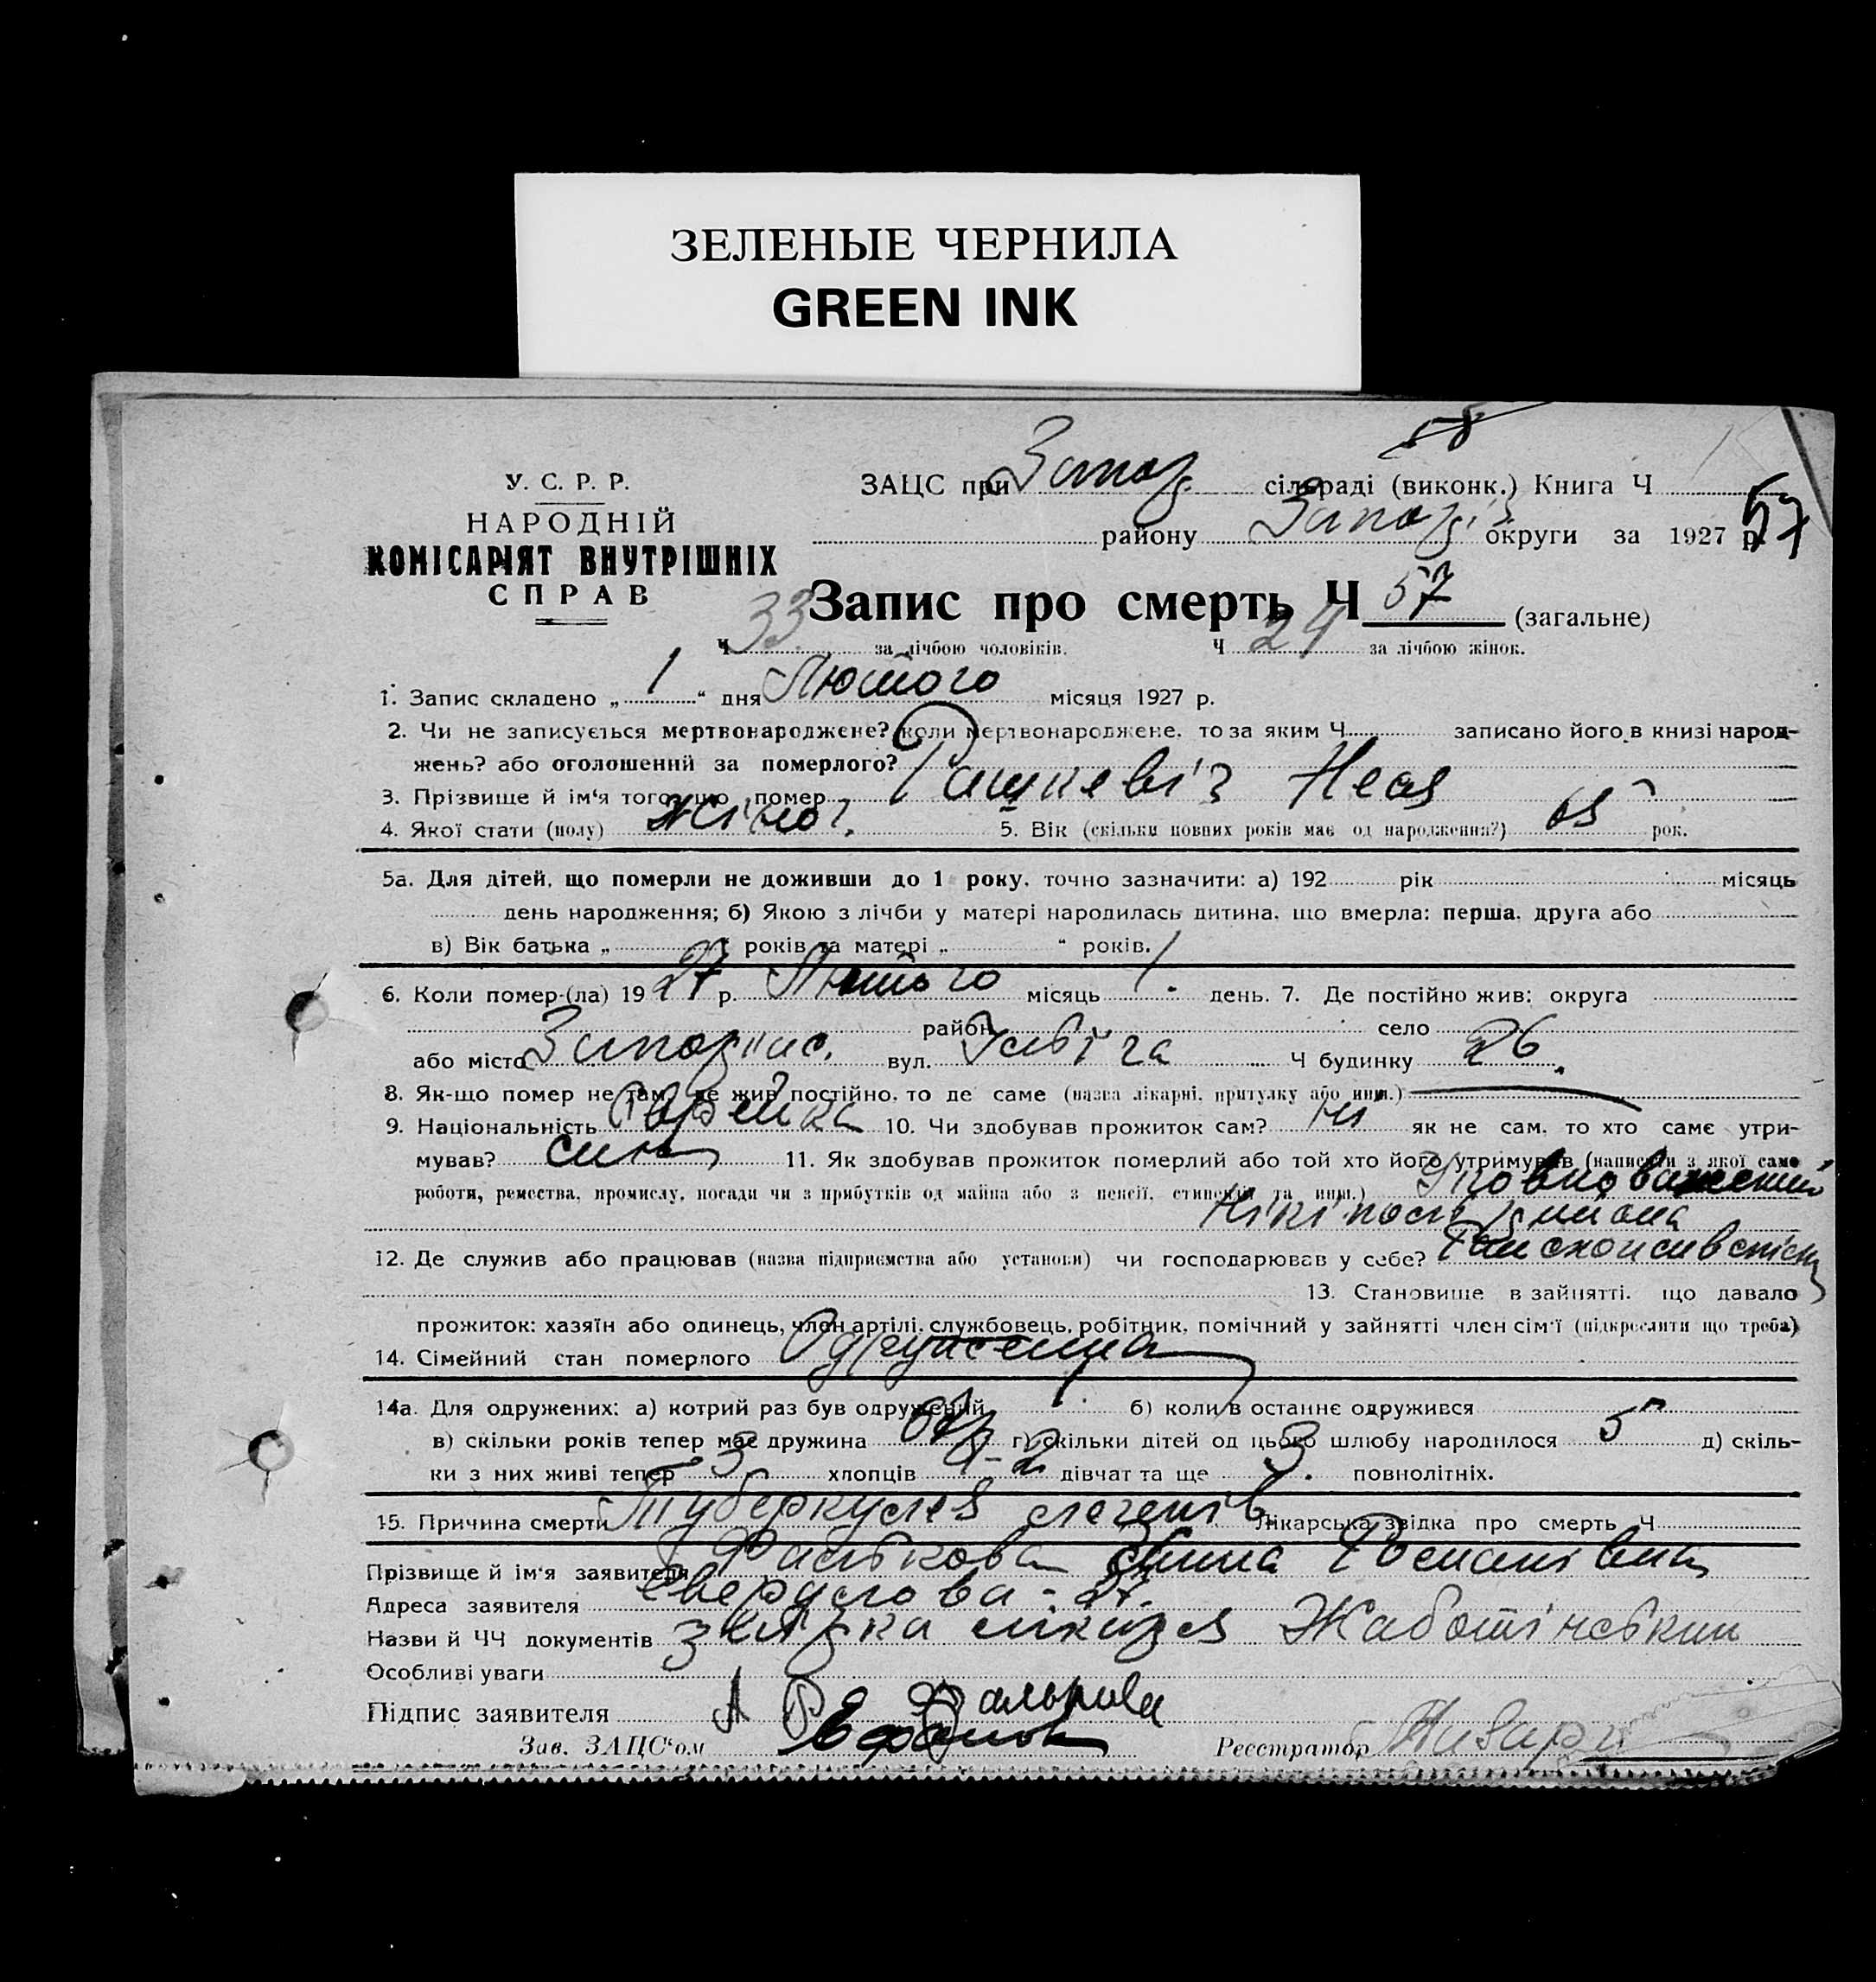 ЗЕЛЕНЫЕ ЧЕРНИЛА
GREEN INK
58
У. С. Р. Р.
НАРОДНІЙ
КОМІСАРІЯТ ВНУТРІШНІХ
СПРАВ
ЗАЦС при Запор. сільраді (виконк.) Книга Ч
району Запоріз округи за 1927 р. 57
Запис про смерть Ч 57 (загальне)
Ч 33 за лічбою чоловіків. Ч 24 за лічбою жінок.
1. Запис складено „ 1 “ дня Лютого місяця 1927 р.
2. Чи не записується мертвонароджене? коли мертвонароджене, то за яким Ч записано його в книзі народ-
жень? або оголошений за померлого?
3. Прізвище й ім'я того, що помер Рашкевіч
4. Якої стати (полу) жіноі. 5. Вік (скільки повних років має од народження?) 65 рок.
5а. Для дітей, що померли не доживши до 1 року, точно зазначити: а) 192 рік місяць
день народження; б) Якою з лічби у матері народилась дитина, що вмерла: перша, друга або
в) Вік батька „ “ років та матері „ “ років.
6. Коли помер-(ла) 19 27 р. Лютого місяць 1 день. 7. Де постійно жив: округа
район село
або місто Запоріжжя вул. Гасвіча Ч будинку 26
8. Як-що помер не там, де жив постійно, то де саме (назва лікарні, притулку або инш.)
9. Національність Єврейка 10. Чи здобував прожиток сам? Ні як не сам, то хто саме утри-
мував? син 11. Як здобував прожиток померлий або той хто його утримував (написати з якої саме
роботи, ремества, промислу, посади чи з прибутків од майна або з пенсії, стипендії та инш.) Уповноважений
12. Де служив або працював (назва підприємства або установи) чи господарював у себе?
13. Становище в зайнятті, що давало
прожиток: хазяїн або одинець, член артілі, службовець, робітник, помічний у зайнятті член сім'ї (підкреслити що треба)
14. Сімейний стан померлого Одружена
14а. Для одружених: а) котрий раз був одружений 1 б) коли в останнє одружився
в) скільки років тепер має дружина г) скільки дітей од цього шлюбу народилося 5 д) скіль-
ки з них живі тепер 3 хлопців 1-2 дівчат та ще 3. повнолітніх.
15. Причина смерти Туберкулез легенів Лікарська звідка про смерть Ч
Прізвище й ім'я заявителя Фалькова Анна Романівна
Адреса заявителя Свердлова
Назви й ЧЧ документів звідка лікаря Жаботінський
Особливі уваги
Підпис заявителя А Р Фалькова
Зав. ЗАЦС'ом Реєстратор